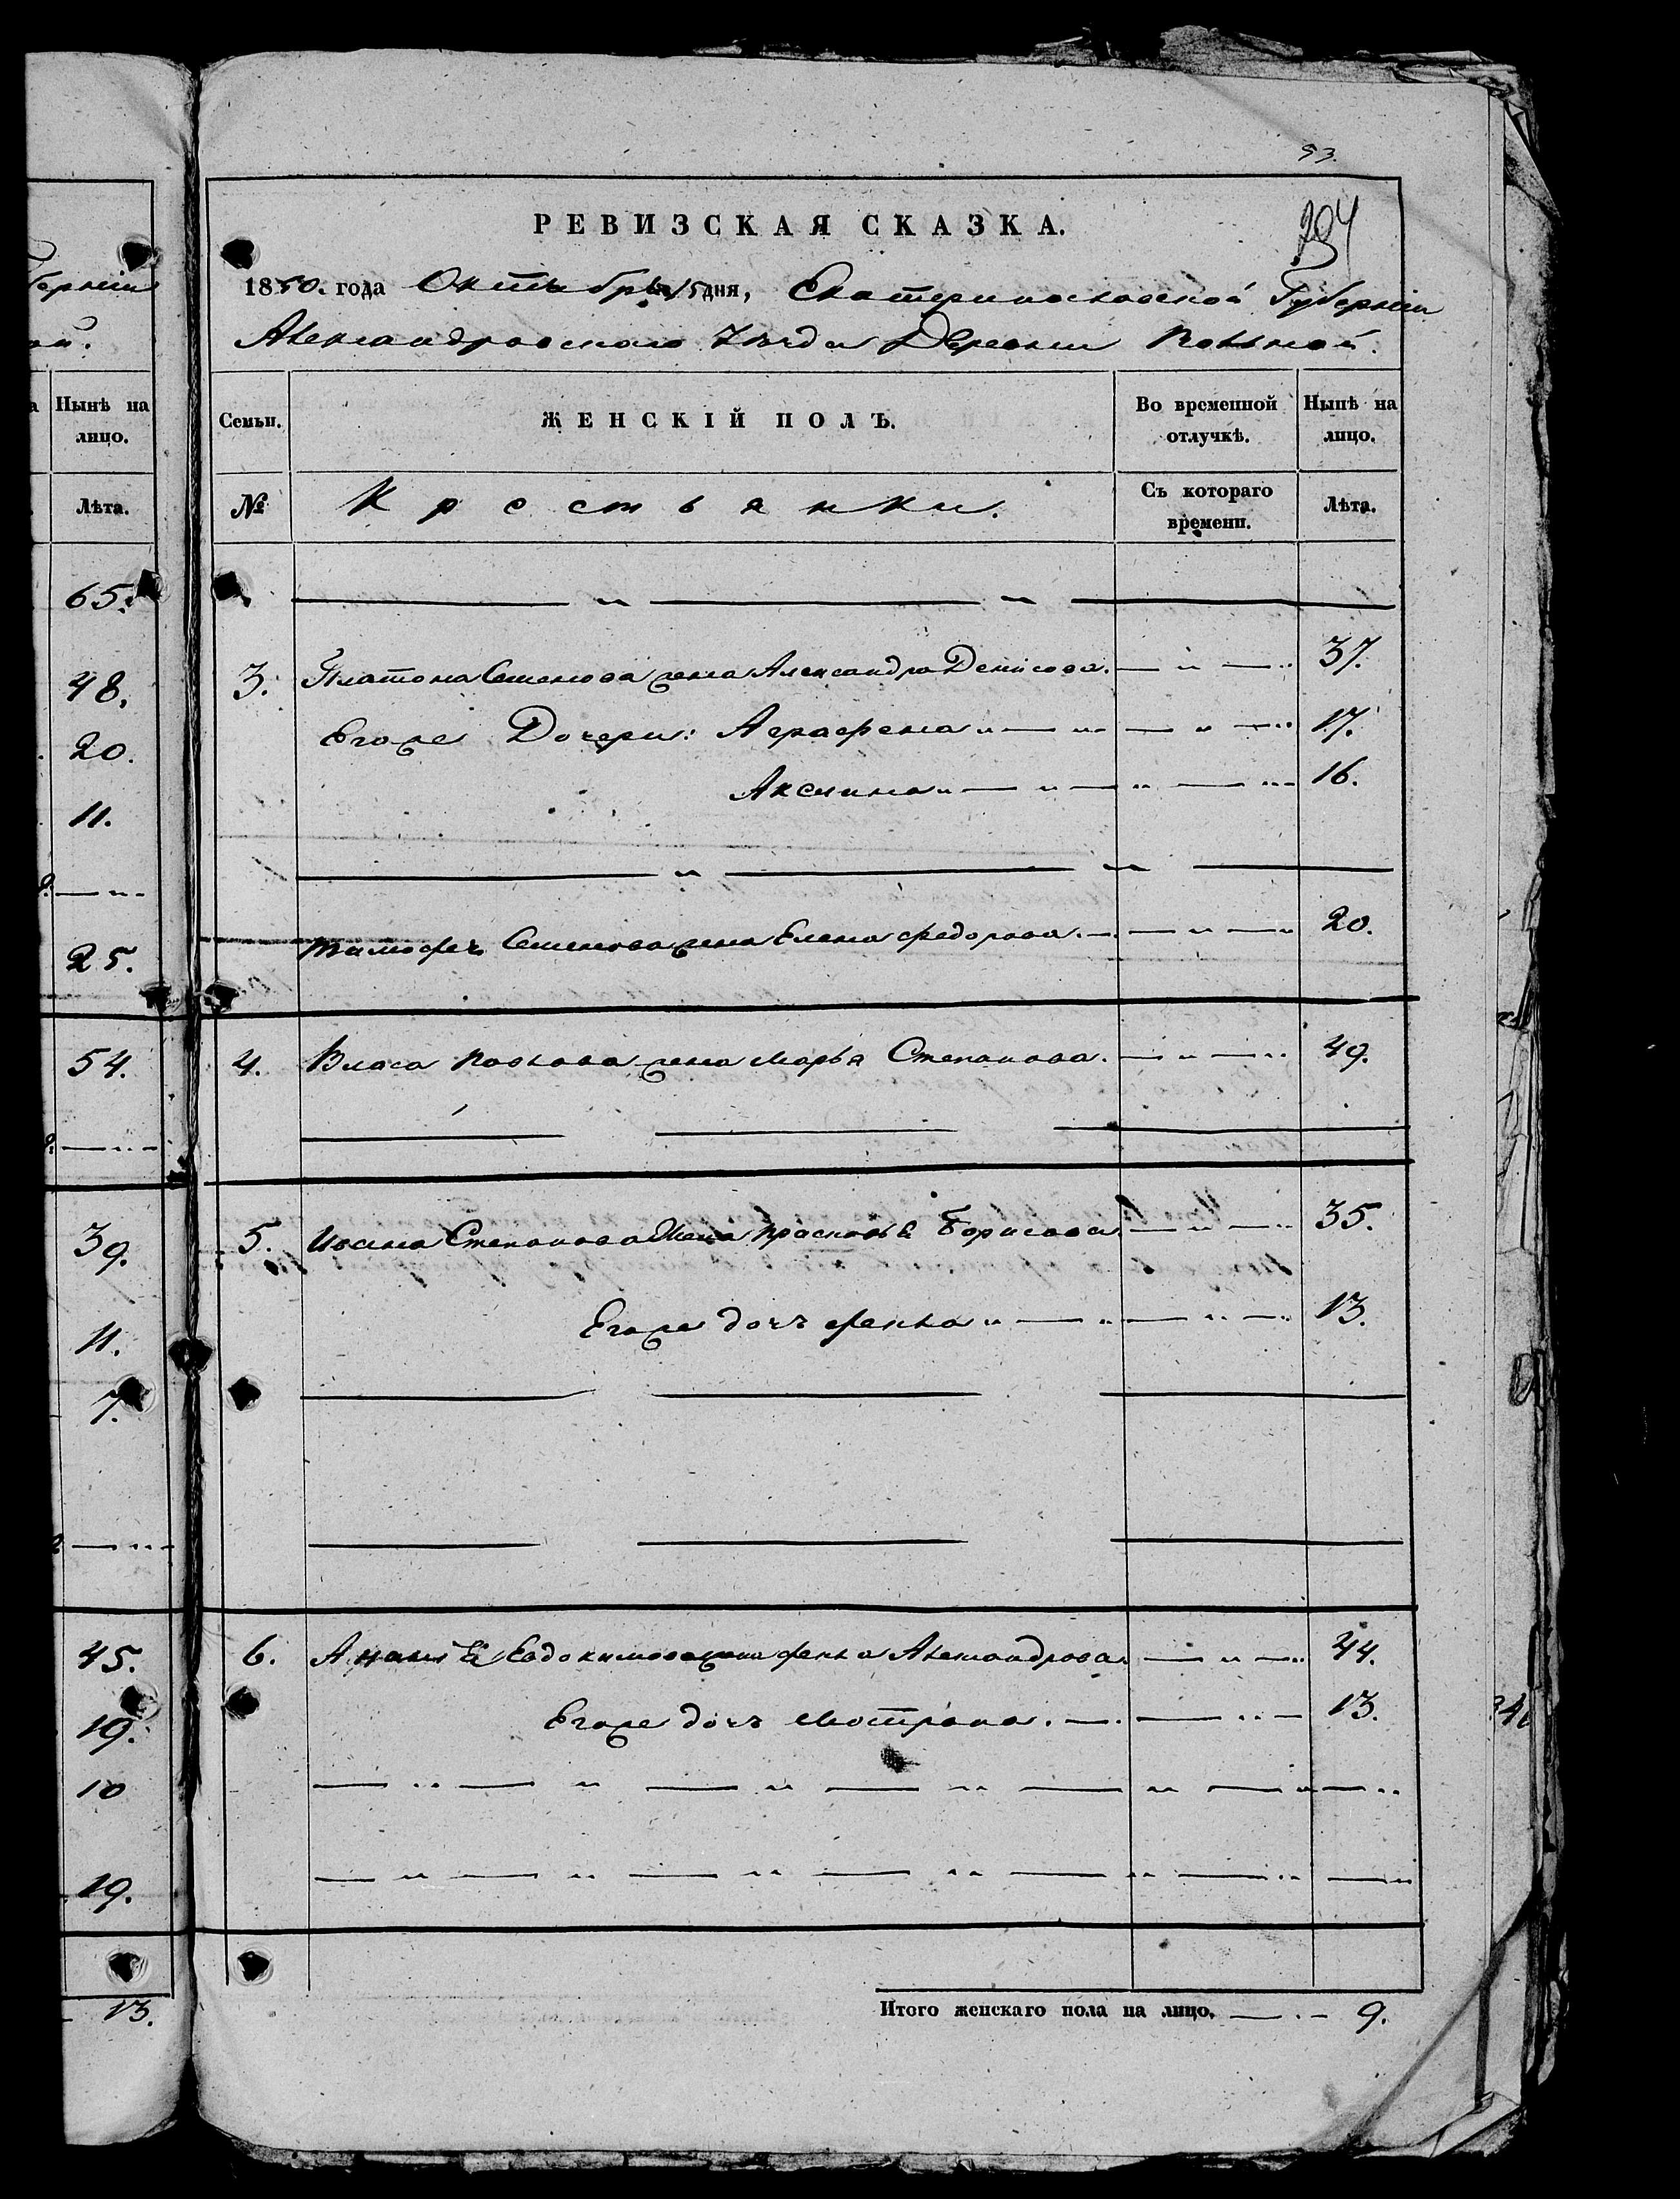 53.
РЕВИЗСКАЯ СКАЗКА.
294
1850. года Октября 15 дня, Екатеринославской Губерніи
Александровскаго Уѣзда Деревни
Нынѣ на лицо.
Лѣта.
65.
48.
20.
11.
25.
54.
39.
11.
7.
45.
19.
10
19.
13.
Семьи.
ЖЕНСКІЙ ПОЛЪ.
Во временной отлучкѣ.
Нынѣ на лицо.
№
Крестьянки.
Съ котораго времени.
Лѣта.
3. Платона Семенова жена Александра Денисова. 37.
Егоже Дочери: Аграфена 17.
Аксинья 16.
Тимофея Семенова жена Елена Федорова. 20.
4. Власа Павлова жена Марья Степанова. 49.
5. Ивана Степанова Жена Прасковья Борисова 35.
Егоже дочь Фекла 13.
6. Евдокимова жена Фекла Александрова. 44.
Егоже дочь Матрона. 13.
Итого женскаго пола на лицо. 9.